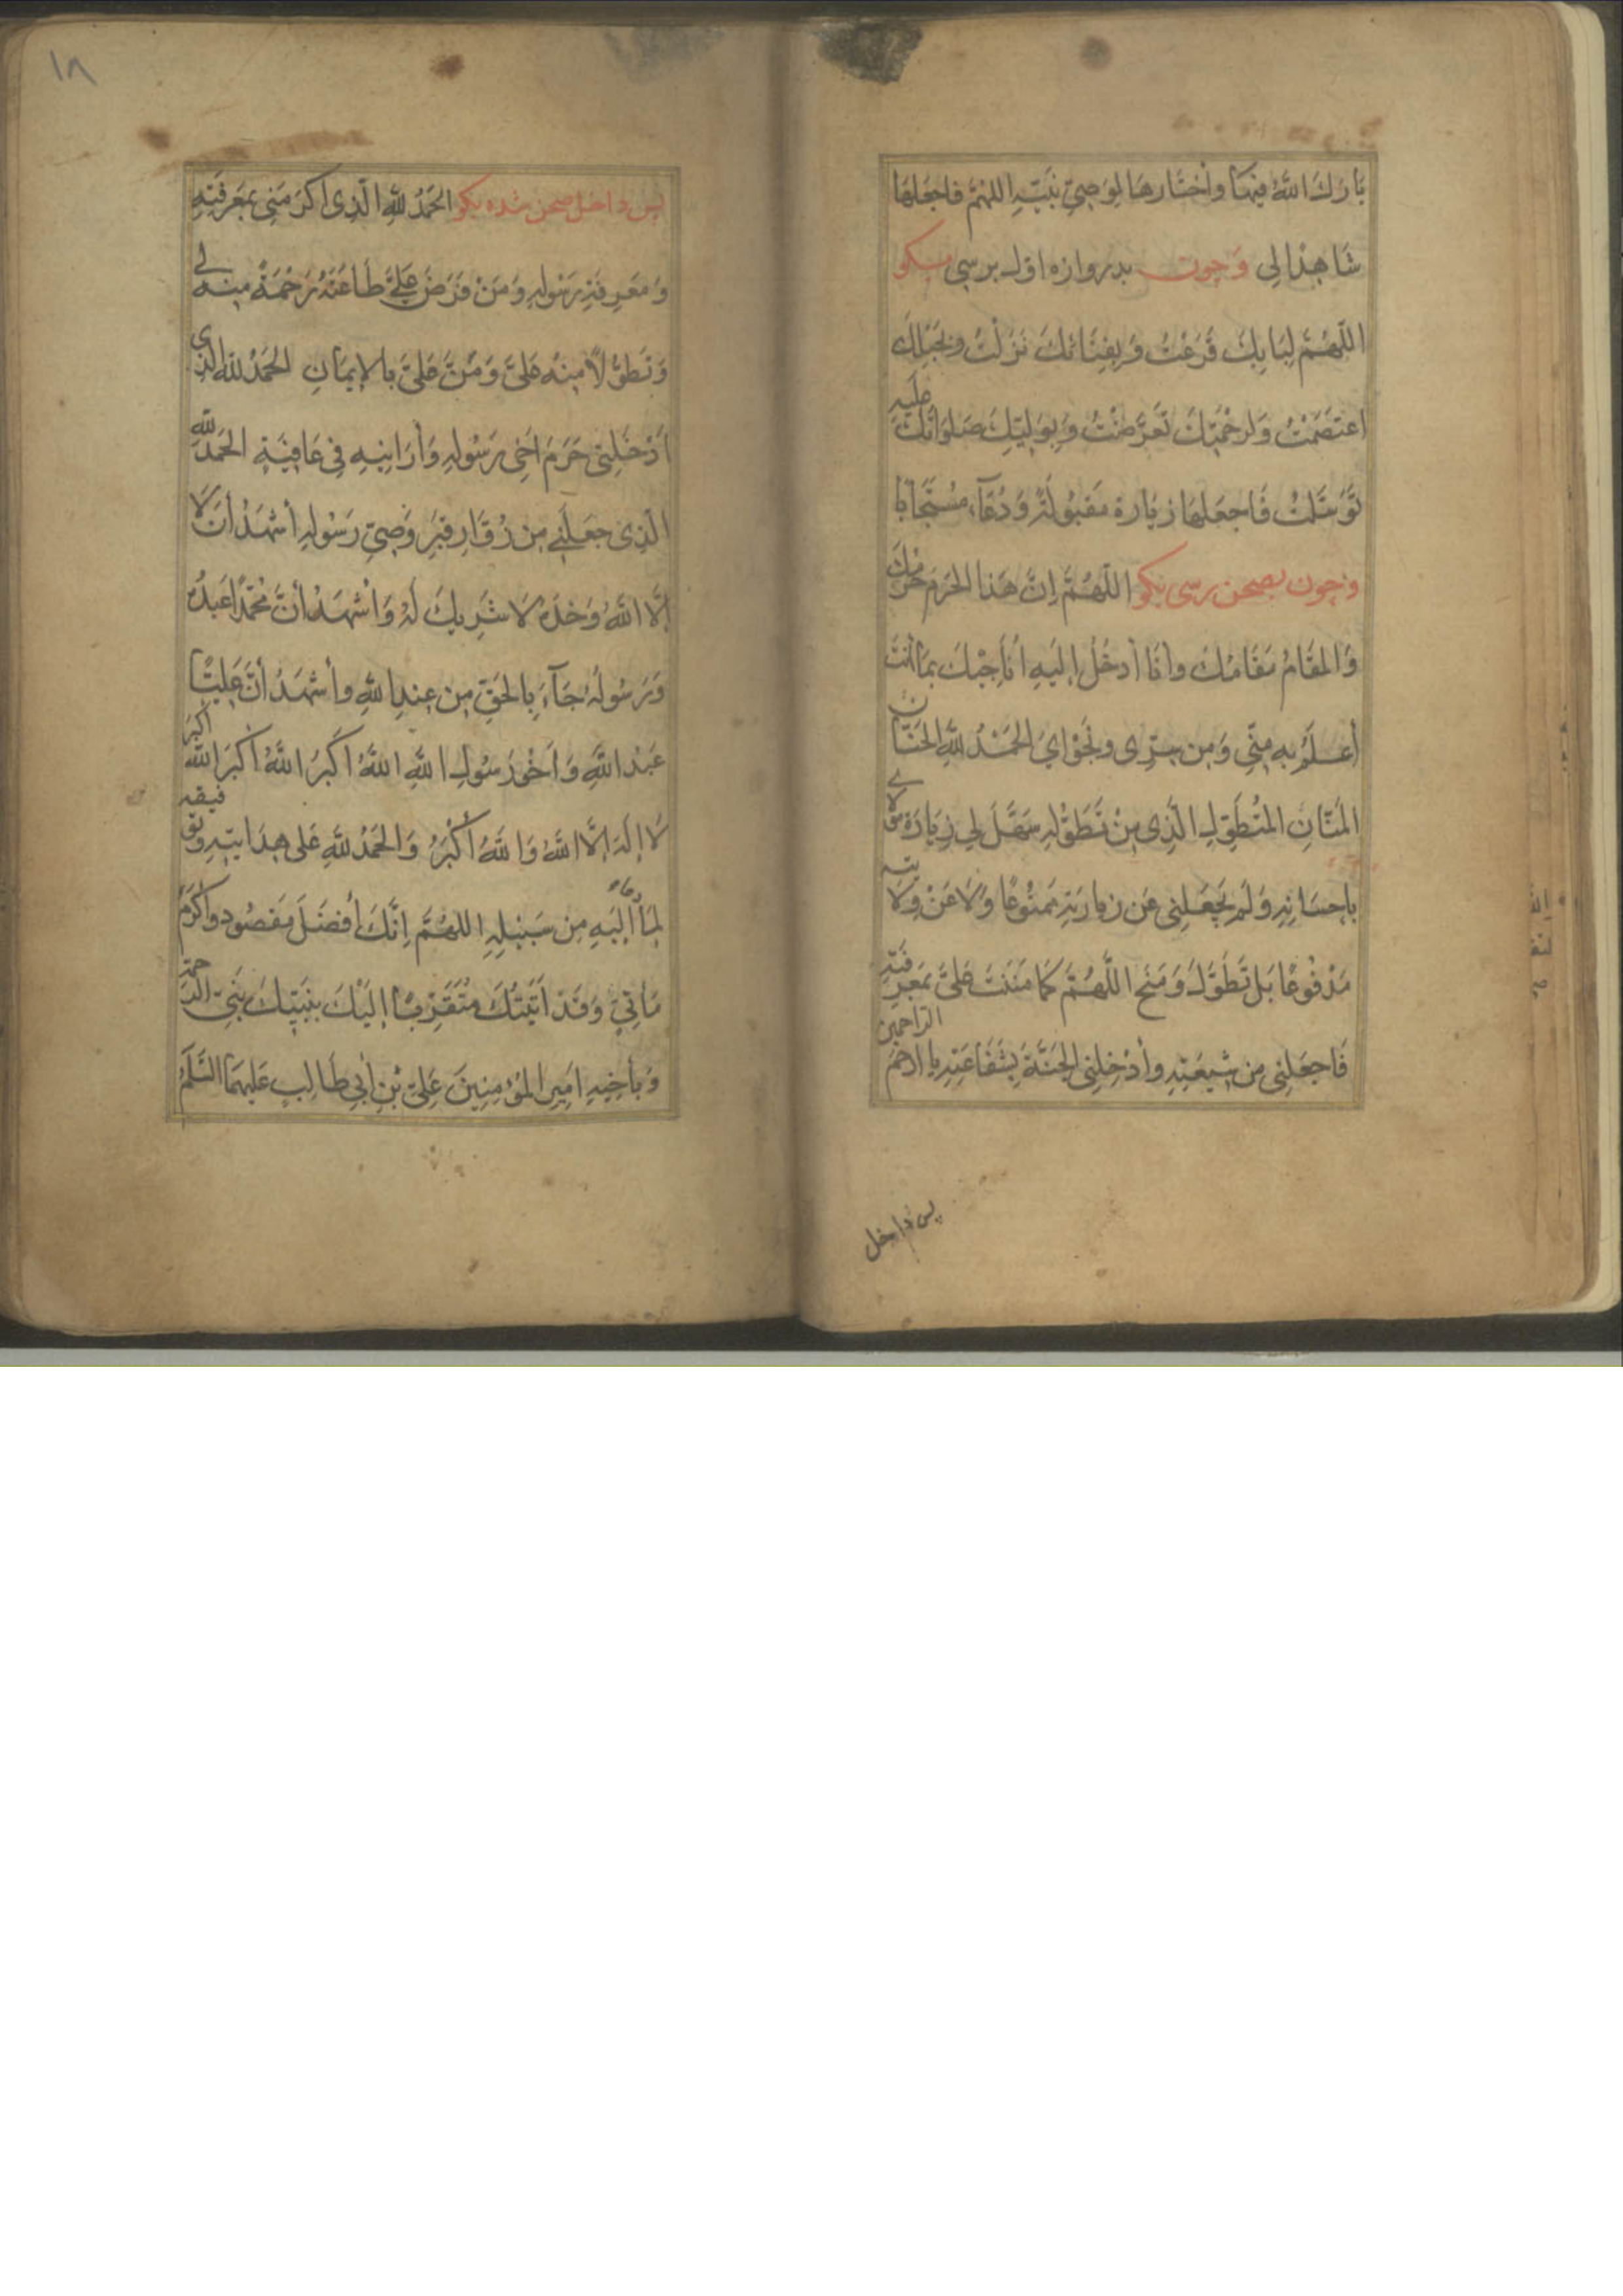 بَارَكَ اللهُ فِيهَا وَاخْتَارَهَا لِوَصِيِّ نَبِيِّهِ اللهُمَّ فَاجْعَلْهَا
شَاهِدًا لِي وچون بدروازه اول برسی بگو
اللَّهُمَّ لِبَابِكَ قَرَعْتُ وَبِفِنَائِكَ نَزَلْتُ وَبِحَبْلِكَ
اعْتَصَمْتُ وَلِرَحْمَتِكَ تَعَرَّضْتُ وَبِوَلِيِّكَ صَلَوَاتُكَ عَلَيْهِ
تَوَسَّلْتُ فَاجْعَلْهَا زِيَارَةً مَقْبُولَةً وَدُعَاءً مُسْتَجَابًا
وچون بصحن رسی بگو اللَّهُمَّ اِنَّ هَذَا الحَرَمَ حَرَمُكَ
وَالمَقَامُ مَقَامُكَ وَأَنَا أَدْخُلُ إِلَيْهِ أُنَاجِيكَ بِمَا أَنْتَ
أَعْلَمُ بِهِ مِنِّي وَمِنْ سِرِّي وَنَجْوَايَ الحَمْدُ لِلَّهِ الحَنَّانِ
المَنَّانِ المُتَطَوِّلِ الَّذِي مِنْ تَطَوُّلِهِ سَهَّلَ لِي زِيَارَةَ مَوْلَايَ
بِإِحْسَانِهِ وَلَمْ يَجْعَلْنِي عَنْ زِيَارَتِهِ مَمْنُوعًا وَلَا عَنْ وِلَايَتِهِ
مَدْفُوعًا بَلْ تَطَوَّلَ وَمَنَحَ اللَّهُمَّ كَمَا مَنَنْتَ عَلَيَّ بِمَعْرِفَتِهِ
فَاجْعَلْنِي مِنْ شِيعَتِهِ وَأَدْخِلْنِي الجَنَّةَ بِشَفَاعَتِهِ يَا ارحَمَ الراحمين
پس داخل
١٨
پس داخل صحن شده بگو الحَمْدُ لِلَّهِ الَّذِي أَكْرَمَنِي بِمَعْرِفَتِهِ
وَمَعْرِفَةِ رَسُولِهِ وَمَنْ فَرَضَ عَلَيَّ طَاعَتَهُ رَحْمَةً مِنْهُ لِي
وَتَطَوُّلًا مِنْهُ عَلَيَّ وَمَنَّ عَلَيَّ بِالإِيمَانِ الحَمْدُ لِلَّهِ الَّذِي
أَدْخَلَنِي حَرَمَ أَخِي رَسُولِهِ وَأَرَانِيهِ فِي عَافِيَةٍ الحَمْدُ لِلَّهِ
الَّذِي جَعَلَنِي مِنْ زُوَّارِ قَبْرِ وَصِيِّ رَسُولِهِ أَشْهَدُ أَنْ لَا
إِلَّا اللهُ وَحْدَهُ لَا شَرِيكَ لَهُ وَأَشْهَدُ أَنَّ مُحَمَّدًا عَبْدُهُ
وَرَسُولُهُ جَاءَ بِالحَقِّ مِنْ عِنْدِ اللهِ وَأَشْهَدُ أَنَّ عَلِيًّا
عَبْدُ اللَّهِ وَأَخُو رَسُولِ اللَّهِ اللهُ أَكْبَرُ اللَّهُ أَكْبَرُ اللهُ أَكْبَرُ
لَا إِلَهَ إِلَّا اللهُ وَاللهُ أَكْبَرُ وَالحَمْدُ لِلَّهِ عَلَى هِدَايَتِهِ وَتَوْفِيقِهِ
لِمَا دَعَا إِلَيْهِ مِنْ سَبِيلِهِ اللهُمَّ إِنَّكَ أَفْضَلُ مَقْصُودٍ وَأَكْرَمُ
مَأْتِيٍّ وَقَدْ أَتَيْتُكَ مُتَقَرِّبًا إِلَيْكَ بِنَبِيِّكَ نَبِيِّ الرَّحْمَةِ
وَبِأَخِيهِ أَمِيرِ المُؤْمِنِينَ عَلِيِّ بْنِ أَبِي طَالِبٍ عَلَيْهِمَا السَّلَمُ